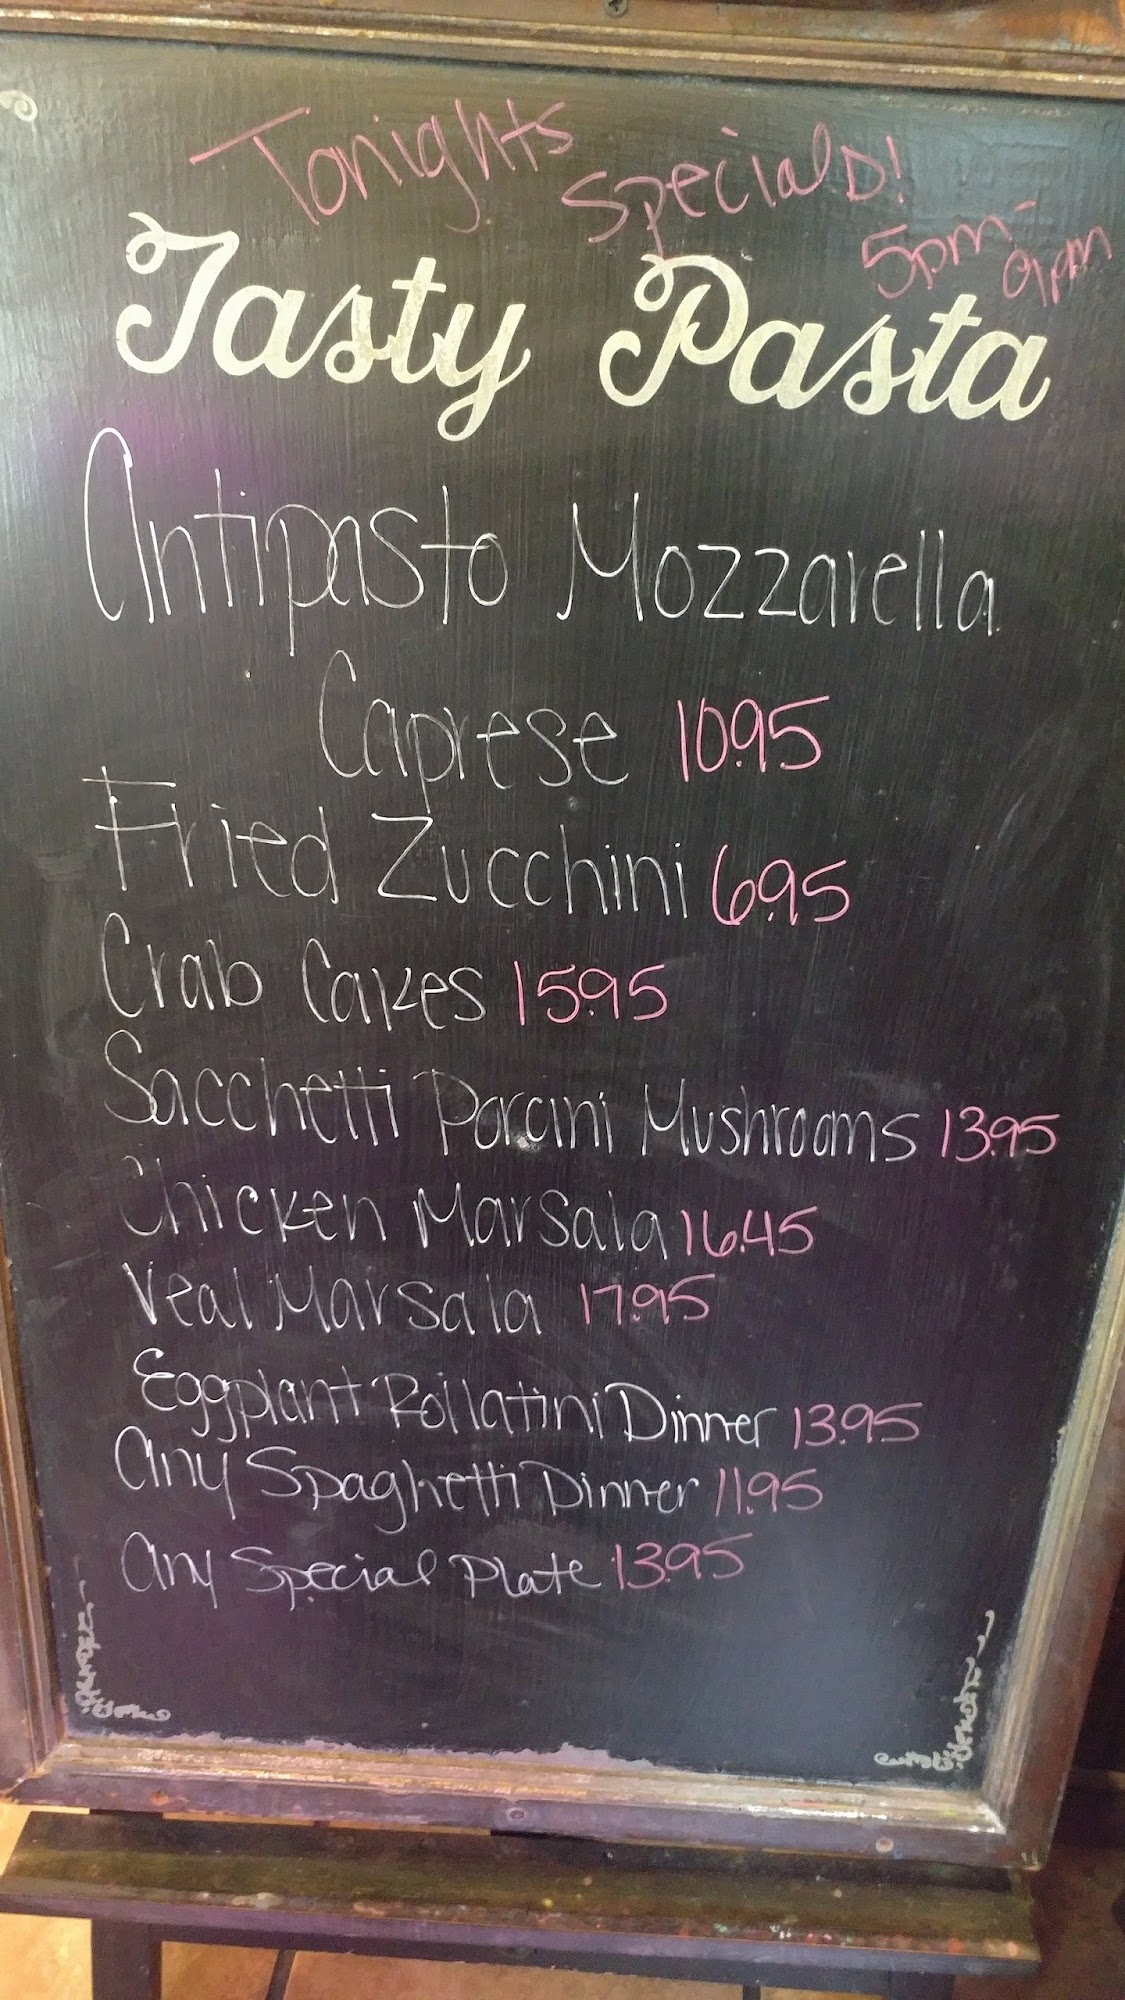 Tonights Specials!
5pm-9pm
Tasty Pasta
Antipasto Mozzarella
Caprese 10.95
Fried Zucchini 6.95
Crab Cakes 15.95
Sacchetti Porcini Mushrooms 13.95
Chicken Marsala 16.45
Veal Marsala 17.95
Eggplant Rollatini Dinner 13.95
Any Spaghetti Dinner 11.95
Any Special Plate 13.95